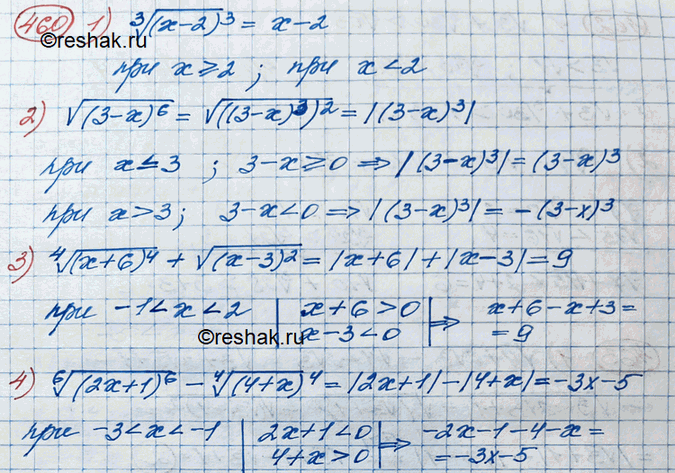 460 1) ∛(x-2)³ = x-2
©reshak.ru
при x ≥ 2 ; при x < 2
2) √(3-x)⁶ = √((3-x)³)² = |(3-x)³|
при x ≤ 3 ; 3-x ≥ 0 ⇒ |(3-x)³| = (3-x)³
при x > 3 ; 3-x < 0 ⇒ |(3-x)³| = -(3-x)³
3) ∜(x+6)⁴ + √(x-3)² = |x+6| + |x-3| = 9
при -1 < x < 2 | x+6 > 0 | ⇒ x+6-x+3 =
©reshak.ru | x-3 < 0 | = 9
4) ⁶√(2x+1)⁶ - ∜(4+x)⁴ = |2x+1| - |4+x| = -3x-5
при -3 < x < -1 | 2x+1 < 0 | ⇒ -2x-1-4-x =
| 4+x > 0 | = -3x-5